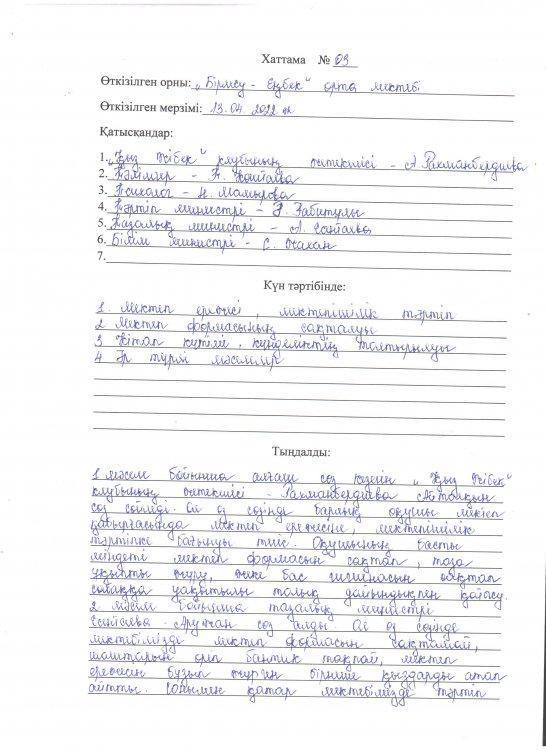 Хаттама № 03
Өткізілген орны: „Бірлесу - Еңбек“ орта мектебі
Өткізілген мерзімі: 13.04.2022 ж
Қатысқандар:
1. „Қыз Жібек“ клубының жетекшісі - А Рахманбердиева
2. Тәлімгер - Т.
3. Психолог - Н. Мамырова
4. Тәртіп министрі - Ә. Забитұлы
5. Тазалық министрі - А. Сейтаева
6. Білім министрі - С. Жахан
7.
Күн тәртібінде:
1. Мектеп ережесі, мектепішілік тәртіп
2 Мектеп формасының сақталуы
3 Кітап күтімі, күнделіктің толтырылуы
4 Әр түрлі мәселелер
Тыңдалды:
1 мәселе бойынша алғаш сөз кезегін „Қыз Жібек“
клубының жетекшісі - Рахманбердиева Айтолқын
сөз сөйледі. Ол өз сөзінде барлық оқушы мектеп
қабырғасында мектеп ережесіне, мектепішілік
тәртіпке бағынуы тиіс. Оқушының басты
міндеті мектеп формасын сақтап, таза
ұқыпты жүру, және бас гигиенасын сақтап
сабаққа уақытылы толық дайындықпен қатысу.
2 мәселе бойынша тазалық министрі
Сейтаева Аружан сөз алды. Ол өз сөзінде
мектебімізді мектеп формасын сақтамай,
шаштарын өріп бантик тақпай, мектеп
ережесін бұзып жүрген бірнеше қыздарды атап
айтты. Сонымен қатар мектебімізде тәртіп